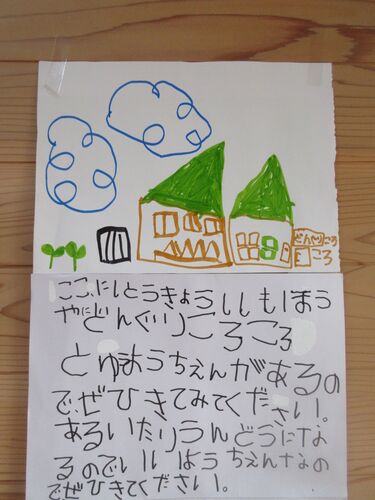 どんぐりころ
ころ
ここにしとうきょうししもほう
やにどんぐりころころ
とゆようちえんがあるの
でぜひきてみてください。
あるいたりうんどうにな
るのでいいようちえんなの
でぜひきてください。